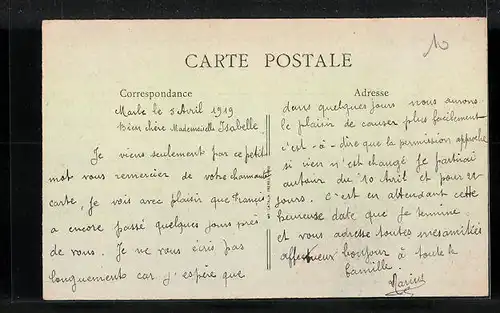 10
CARTE POSTALE
Correspondance
Marle le 5 Avril 1919
Bien chère Mademoiselle Isabelle.
Je viens seulement par ce petit
mot vous remercier de votre charmante
carte, je vois avec plaisir que François
a encore passé quelques jours près
de vous. Je ne vous écris pas
longuement car j'espère que
Adresse
dans quelques jours nous aurons
le plaisir de causer plus facilement
c'est-à-dire que la permission approche
si rien n'est changé je partirai
autour du 10 Avril et pour
jours. C'est en attendant cette
heureuse date que je termine
et vous adresse toutes mes amitiés
affectueux bonjour à toute la
famille.
Marius